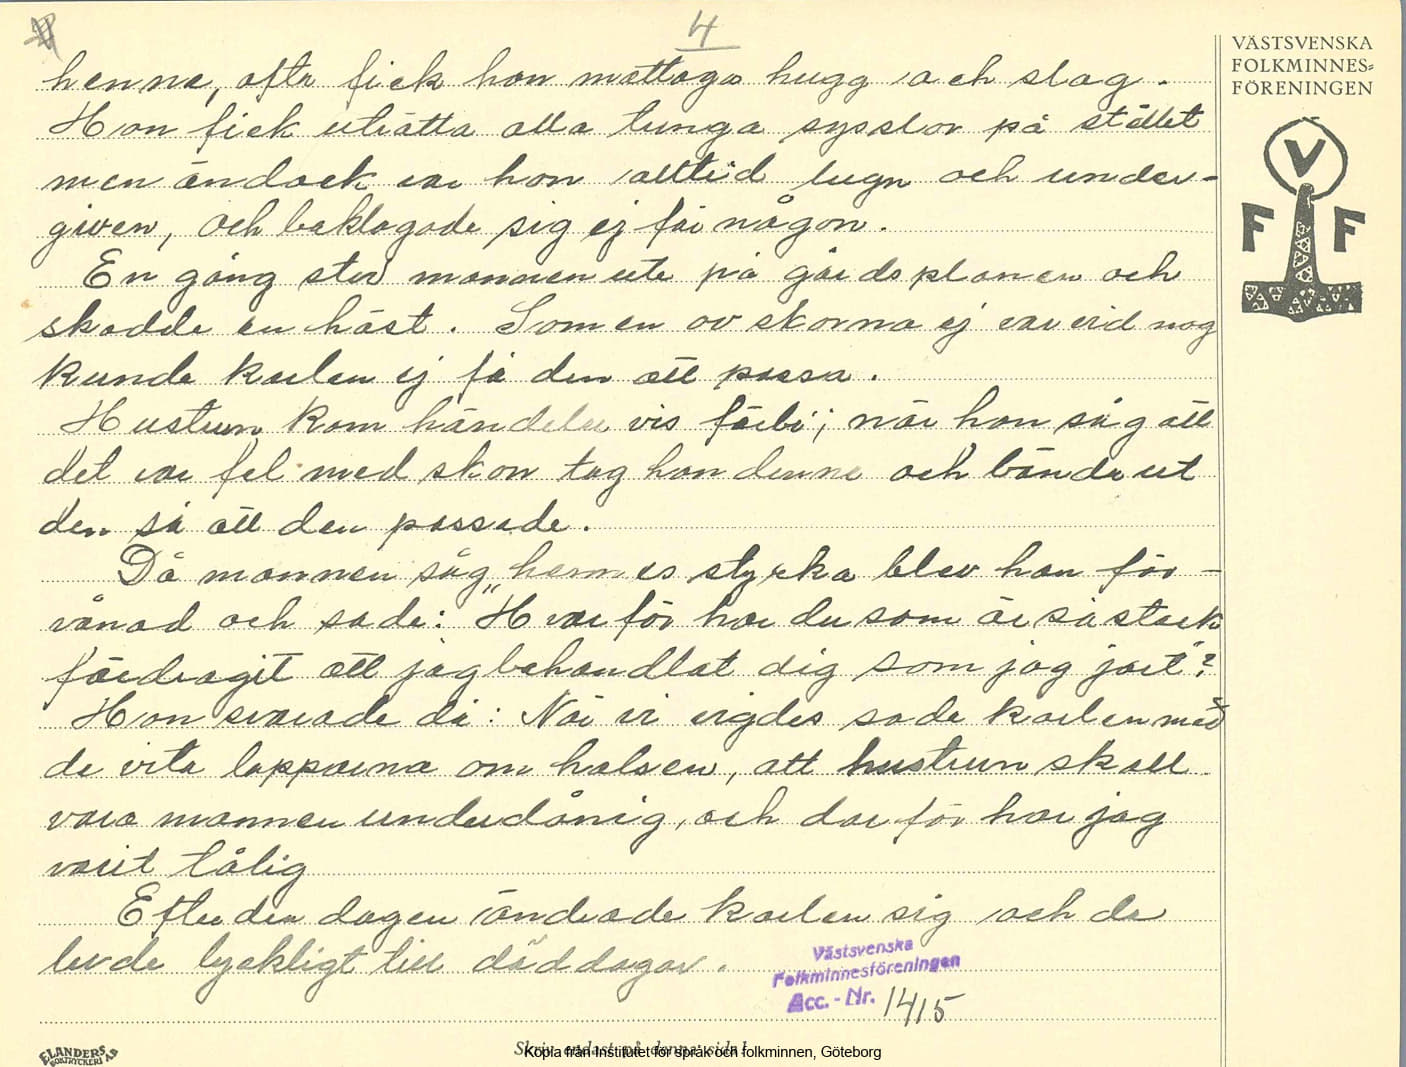 4
VÄSTSVENSKA
FOLKMINNES=
FÖRENINGEN
V
F F
henne, ofta fick hon mottaga hugg och slag.
Hon fick uträtta alla tunga sysslor på stället
men ändock var hon alltid lugn och under-
given, och beklagade sig ej för någon.
En gång stod mannen ute på gårdsplanen och
skodde en häst. Som en av skorna ej var vid nog
kunde karlen ej få den att passa.
Hustrun kom händelse vis förbi; när hon såg att
det var fel med skon tog hon denne och bände ut
den så att den passade.
Då mannen såg hennes styrka blev han för-
vånad och sade: "Hvarför har du som är så stark
fördragit att jag behandlat dig som jag jort"?
Hon svarade då: När vi vigdes sade karlen med
de vita lapparna om halsen, att hustrun skall
vara mannen underdånig, och dar för har jag
varit tålig
Efter den dagen ändrade karlen sig och de
levde lyckligt till död dagar.
Västsvenska
Folkminnesföreningen
Acc. - Nr. 1415
ELANDERS
BOKTRYCKERI AB
Skriv endast på denna sida!
Kopia från Institutet för språk och folkminnen, Göteborg